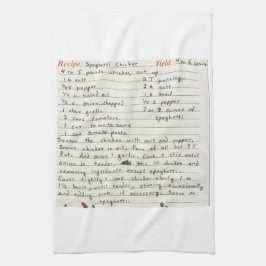 Recipe: Spaghetti Chicken Yield: 4 to 6 servings
4 to 5 pounds chicken, cut up
1 t. salt 2 T parsley
1/4 t. pepper 2 t. salt
1/4 c. salad oil 1 t. basil
1/2 c. onion, chopped 1/4 t. pepper
1 clove garlic 7 or 8 ounces of
2 cans tomatoes spaghetti
1 can tomato sauce
1 can tomato paste
Season the chicken with salt and pepper.
Brown chicken in oil. Pour off all but 3 T
fat. Add onion + garlic. Cook & stir until
onion is tender. Stir in chicken and
remaining ingredients except spaghetti.
Cover tightly & cook chicken slowly 1 to
1 1/2 hours, until tender, stirring occasionally
and adding water if necessary. Serve on
spaghetti.